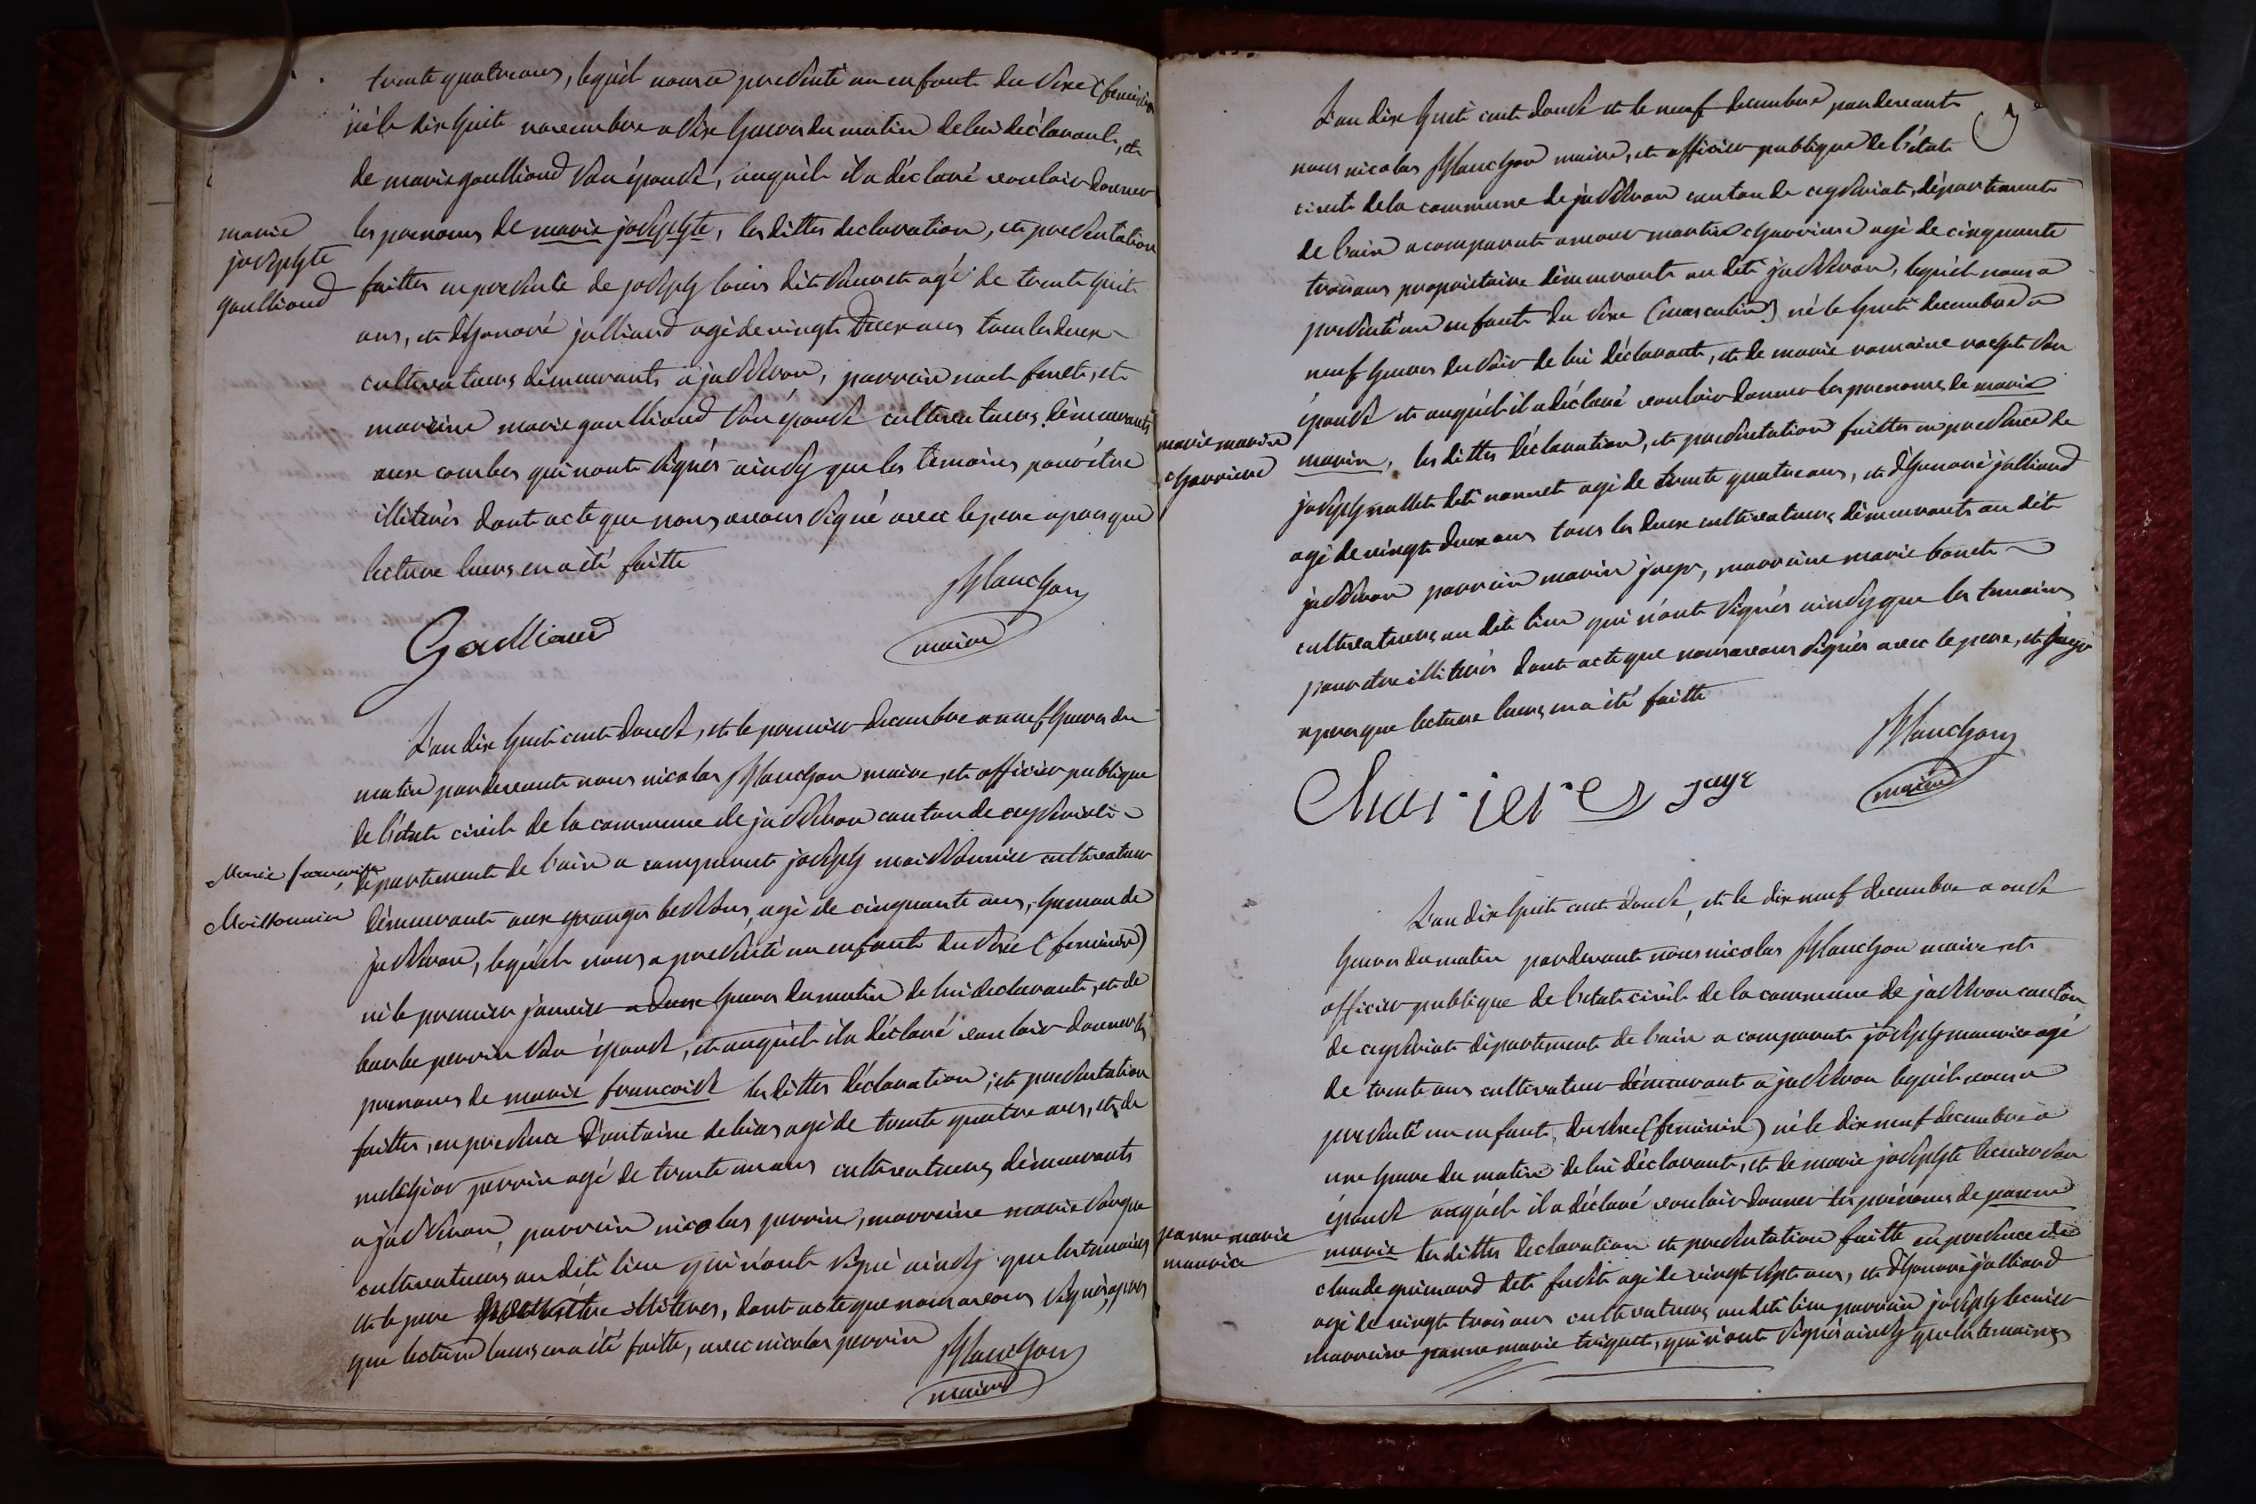 trente quatre ans, lequel nous a presenté un enfant du sexe (feminin)
né le dix huit novembre a six heures du matin de lui déclarant, et
de marie goulliaud son épouse, auquel il a déclaré vouloir donner
marie
josephte
goulliaud
les prenoms de marie josephte, les dittes declaration, et presentation
faittes en presence de joseph loüis dit agé de trente huit
ans, et d'honoré julliand agé de vingt deux ans tous les deux
cultivateurs démeurants a jasseron, parrain et
marreine marie goulliaud son épouse cultivateurs démeurants
aux combes qui n'ont signés ainsy que les témoins pour être
illiterés dont acte que nous avons signé avec le pere apres que
lecture leurs en a été faitte
Goulliaud
Manchon
maire
L'an dix huit cent douse, et le premier decembre a neuf heures du
matin pardevant nous nicolas Manchon maire, et officier publique
de l'état civil de la commune de jasseron canton de ceyseriat
Marie francoise
Moissonnier
département de l'ain a comparut joseph moissonnier cultivateur
démeurant aux granges bessons, agé de cinquante ans, hameau de
jasseron, lequel nous a presenté un enfant du sexe (feminin)
né le premier janvier a deux heures du matin de lui declarant, et de
barbe perrin son épouse, et auquel il a déclaré vouloir donner les
prenoms de marie francoise les dittes déclaration, et presentation
faittes, en presence d'antoine debias agé de trente quatre ans, et de
melchior perrin agé de trente un ans cultivateurs démeurants
a jasseron, parrein nicolas perrin, marreine marie
cultivateurs au dit lieu qui n'ont signé ainsy que les témoins
et le pere pour être illiteres, dont acte que nous avons signés, apres
que lecture leurs en a été faitte, avec nicolas perrin
Manchon
maire
L'an dix huit cent douse et le neuf decembre pardevant
nous nicolas Manchon maire, et officier publique de l'état
civil de la commune de jasseron canton de ceyseriat, département
de l'ain a comparut amour martin charriere agé de cinquante
trois ans propriétaire démeurant au dit jasseron, lequel nous a
presenté un enfant du sexe (masculin) né le huit decembre a
neuf heures du soir de lui déclarant, et de marie romaine son
épouse et auquel il a déclaré vouloir donner les prenoms de marie
marie marin
charriere
marin, les dittes déclaration, et presentation faittes en presence de
joseph dit agé de trente quatre ans, et d'honoré julliand
agé de vingt deux ans tous les deux cultivateurs démeurants au dit
jasseron parrein marin juge, marreine marie
cultivateurs au dit lieu qui n'ont signés ainsy que les temoins
pour être illiterés dont acte que nous avons signés avec le pere, et juge
apres que lecture leurs en a été faitte
Manchon
maire
Charriere juge
L'an dix huit cent douse, et le dix neuf decembre a onse
heures du matin pardevant nous nicolas Manchon maire et
officier publique de l'etat civil de la commune de jasseron canton
de ceyseriat département de l'ain a comparut joseph maurice agé
de trente ans cultivateur démeurant a jasseron lequel nous a
presenté un enfant du sexe (feminin) né le dix neuf decembre a
une heure du matin de lui déclarant, et de marie josephte son
épouse auquel il a déclaré vouloir donner les prénoms de janne
janne marie
maurice
marie les dittes declaration et presentation faitte en presence de
claude grimaud dit agé de vingt sept ans, et d'honoré julliand
agé de vingt trois ans cultivateurs au dit lieu parrein joseph
marreine janne marie, qui n'ont signés ainsy que les temoins